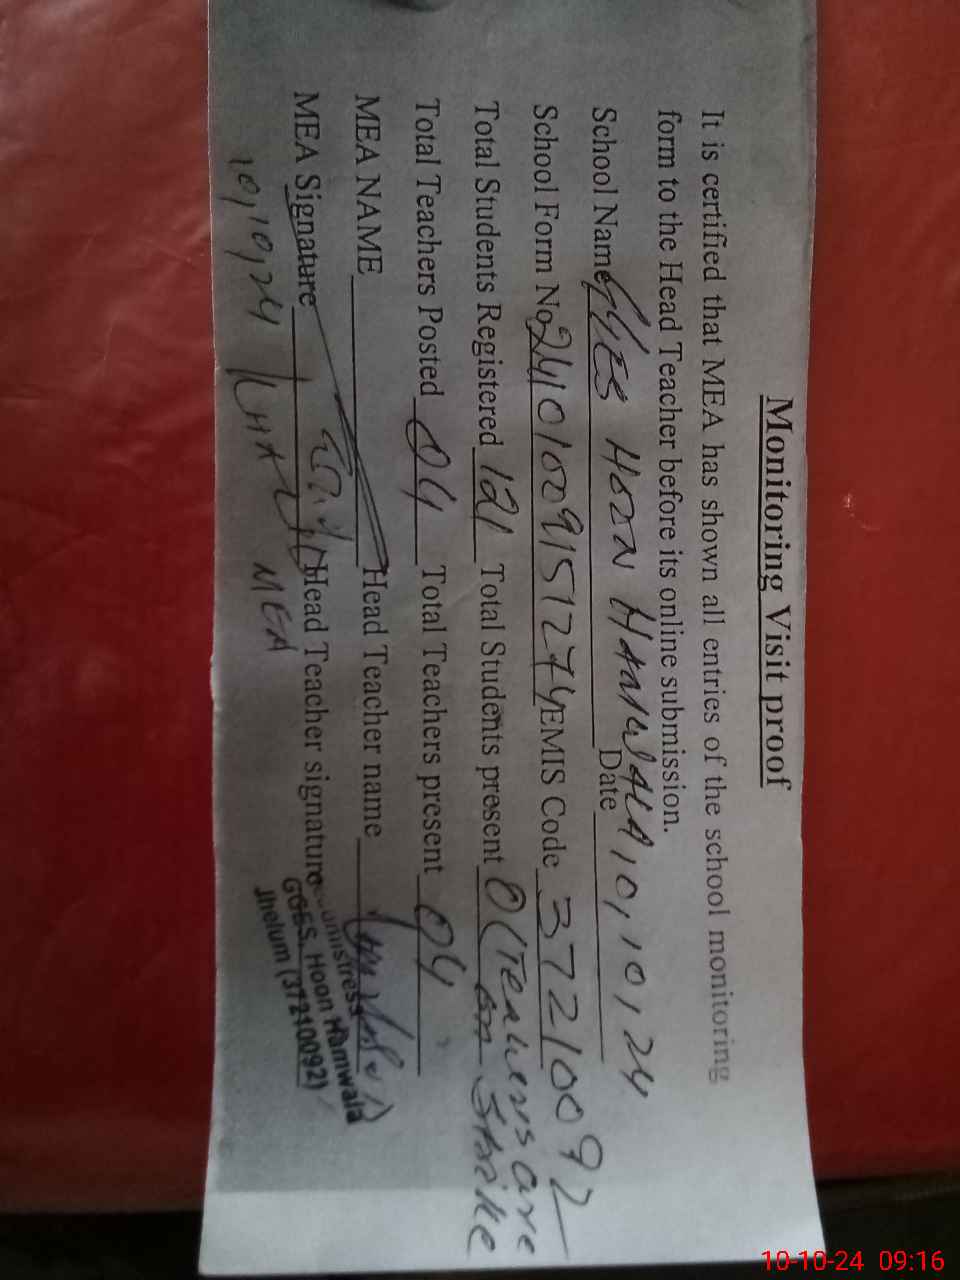 Monitoring Visit proof
It is certified that MEA has shown all entries of the school monitoring
form to the Head Teacher before its online submission.
School Name GGES HOON HAMWALA Date 10,10,24
School Form No 241010091512 74 EMIS Code 37210092
Total Students Registered 121 Total Students present 0 (Teachers are
on Strike
Total Teachers Posted 04 Total Teachers present 04
MEA NAME Head Teacher name
MEA Signature Head Teacher signature
10,10,24 MEA
GGES, Hoon Hamwala
Jhelum (37210092)
10-10-24 09:16